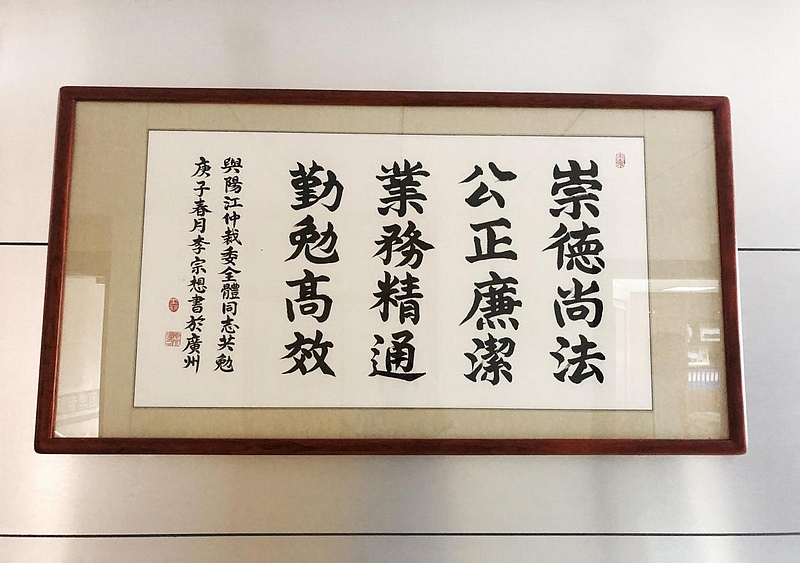 崇德尚法
公正廉潔
業務精通
勤勉高效
與陽江仲裁委全體同志共勉
庚子春月李宗想書於廣州